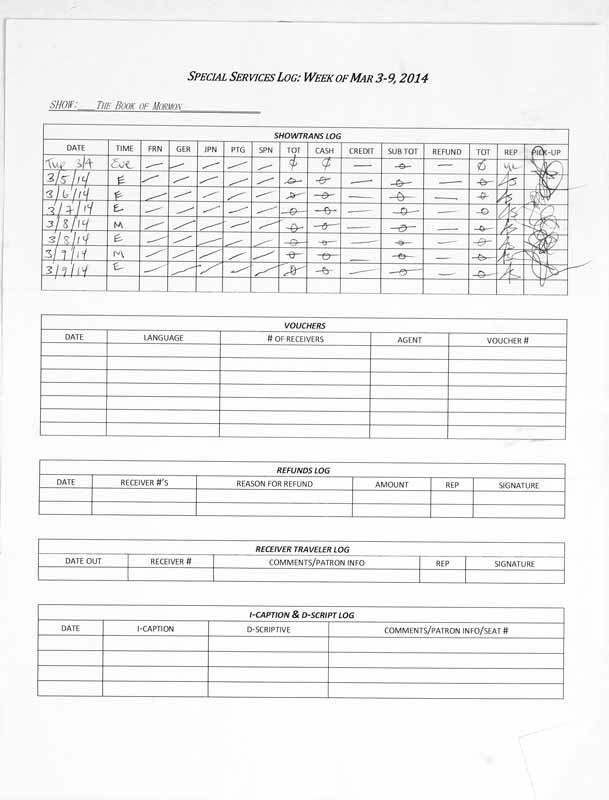 SPECIAL SERVICES LOG: WEEK OF MAR 3-9, 2014
SHOW: THE BOOK OF MORMON
SHOWTRANS LOG
DATE TIME FRN GER JPN PTG SPN TOT CASH CREDIT SUB TOT REFUND TOT REP PICK-UP
Tue 3/4 Eve — — — — — Ø Ø — Ø — Ø
3/5/14 E — — — — — Ø Ø — Ø — Ø
3/6/14 E — — — — — Ø Ø — Ø — Ø
3/7/14 E — — — — — Ø Ø — Ø — Ø
3/8/14 M — — — — — Ø Ø — Ø — Ø
3/8/14 E — — — — — Ø Ø — Ø — Ø
3/9/14 M — — — — — Ø Ø — Ø — Ø
3/9/14 E — — — — — Ø Ø — Ø — Ø
VOUCHERS
DATE LANGUAGE # OF RECEIVERS AGENT VOUCHER #
REFUNDS LOG
DATE RECEIVER #'S REASON FOR REFUND AMOUNT REP SIGNATURE
RECEIVER TRAVELER LOG
DATE OUT RECEIVER # COMMENTS/PATRON INFO REP SIGNATURE
I-CAPTION & D-SCRIPT LOG
DATE I-CAPTION D-SCRIPTIVE COMMENTS/PATRON INFO/SEAT #